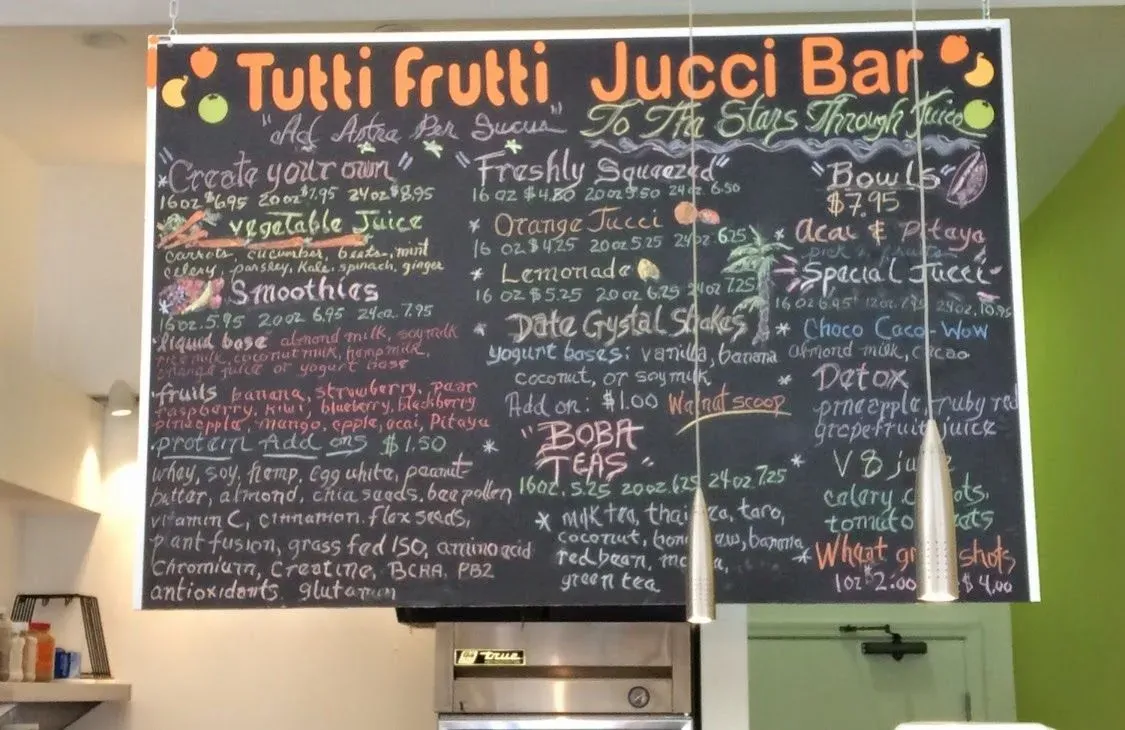 Tutti Frutti Jucci Bar
"Ad Astra Per Sucus"
To Tha Stars Through Juice
*"Create your own"
16 oz $6.95 20 oz $7.95 24 oz $8.95
vegetable Juice
carrots, cucumber, beets, mint
celery, parsley, kale, spinach, ginger
* Smoothies
16 oz. 5.95 20 oz 6.95 24 oz. 7.95
liquid base almond milk, soymilk
rice milk, coconut milk, hemp milk,
orange juice or yogurt base
fruits banana, strawberry, pear
raspberry, kiwi, blueberry, blackberry
pineapple, mango, apple, acai, Pitaya
protein Add ons $1.50
whey, soy, hemp, egg white, peanut
butter, almond, chia seeds, bee pollen
vitamin C, cinnamon. flax seeds,
plant fusion, grass fed ISO, amino acid
Chromium, Creatine, BCAA, PB2
antioxidants, glutamin
"Freshly Squeezed"
16 oz $4.80 20 oz 5.50 24 oz. 6.50
* Orange Jucci
16 oz. $4.25 20 oz 5.25 24 oz 6.25
* Lemonade
16 oz $5.25 20 oz 6.25 24 oz 7.25
* Date Crystal Shakes
yogurt bases: vanilla, banana
coconut, or soymilk
Add on: $1.00 Walnut scoop
* "BOBA
TEAS"
16 oz. 5.25 20 oz. 6.25 24 oz 7.25
* milk tea, thai taro,
coconut, banana
red bean,
green tea
"Bowls"
$7.95
* Acai & Pitaya
Special Jucci
16 oz 6.95 24 oz. 10.95
* Choco Caco-Wow
almond milk, cacao
* Detox
pineapple, ruby red
grapefruit juice
* V8
celery
tomato
* Wheat shots
1 oz $2.00 $4.00
true